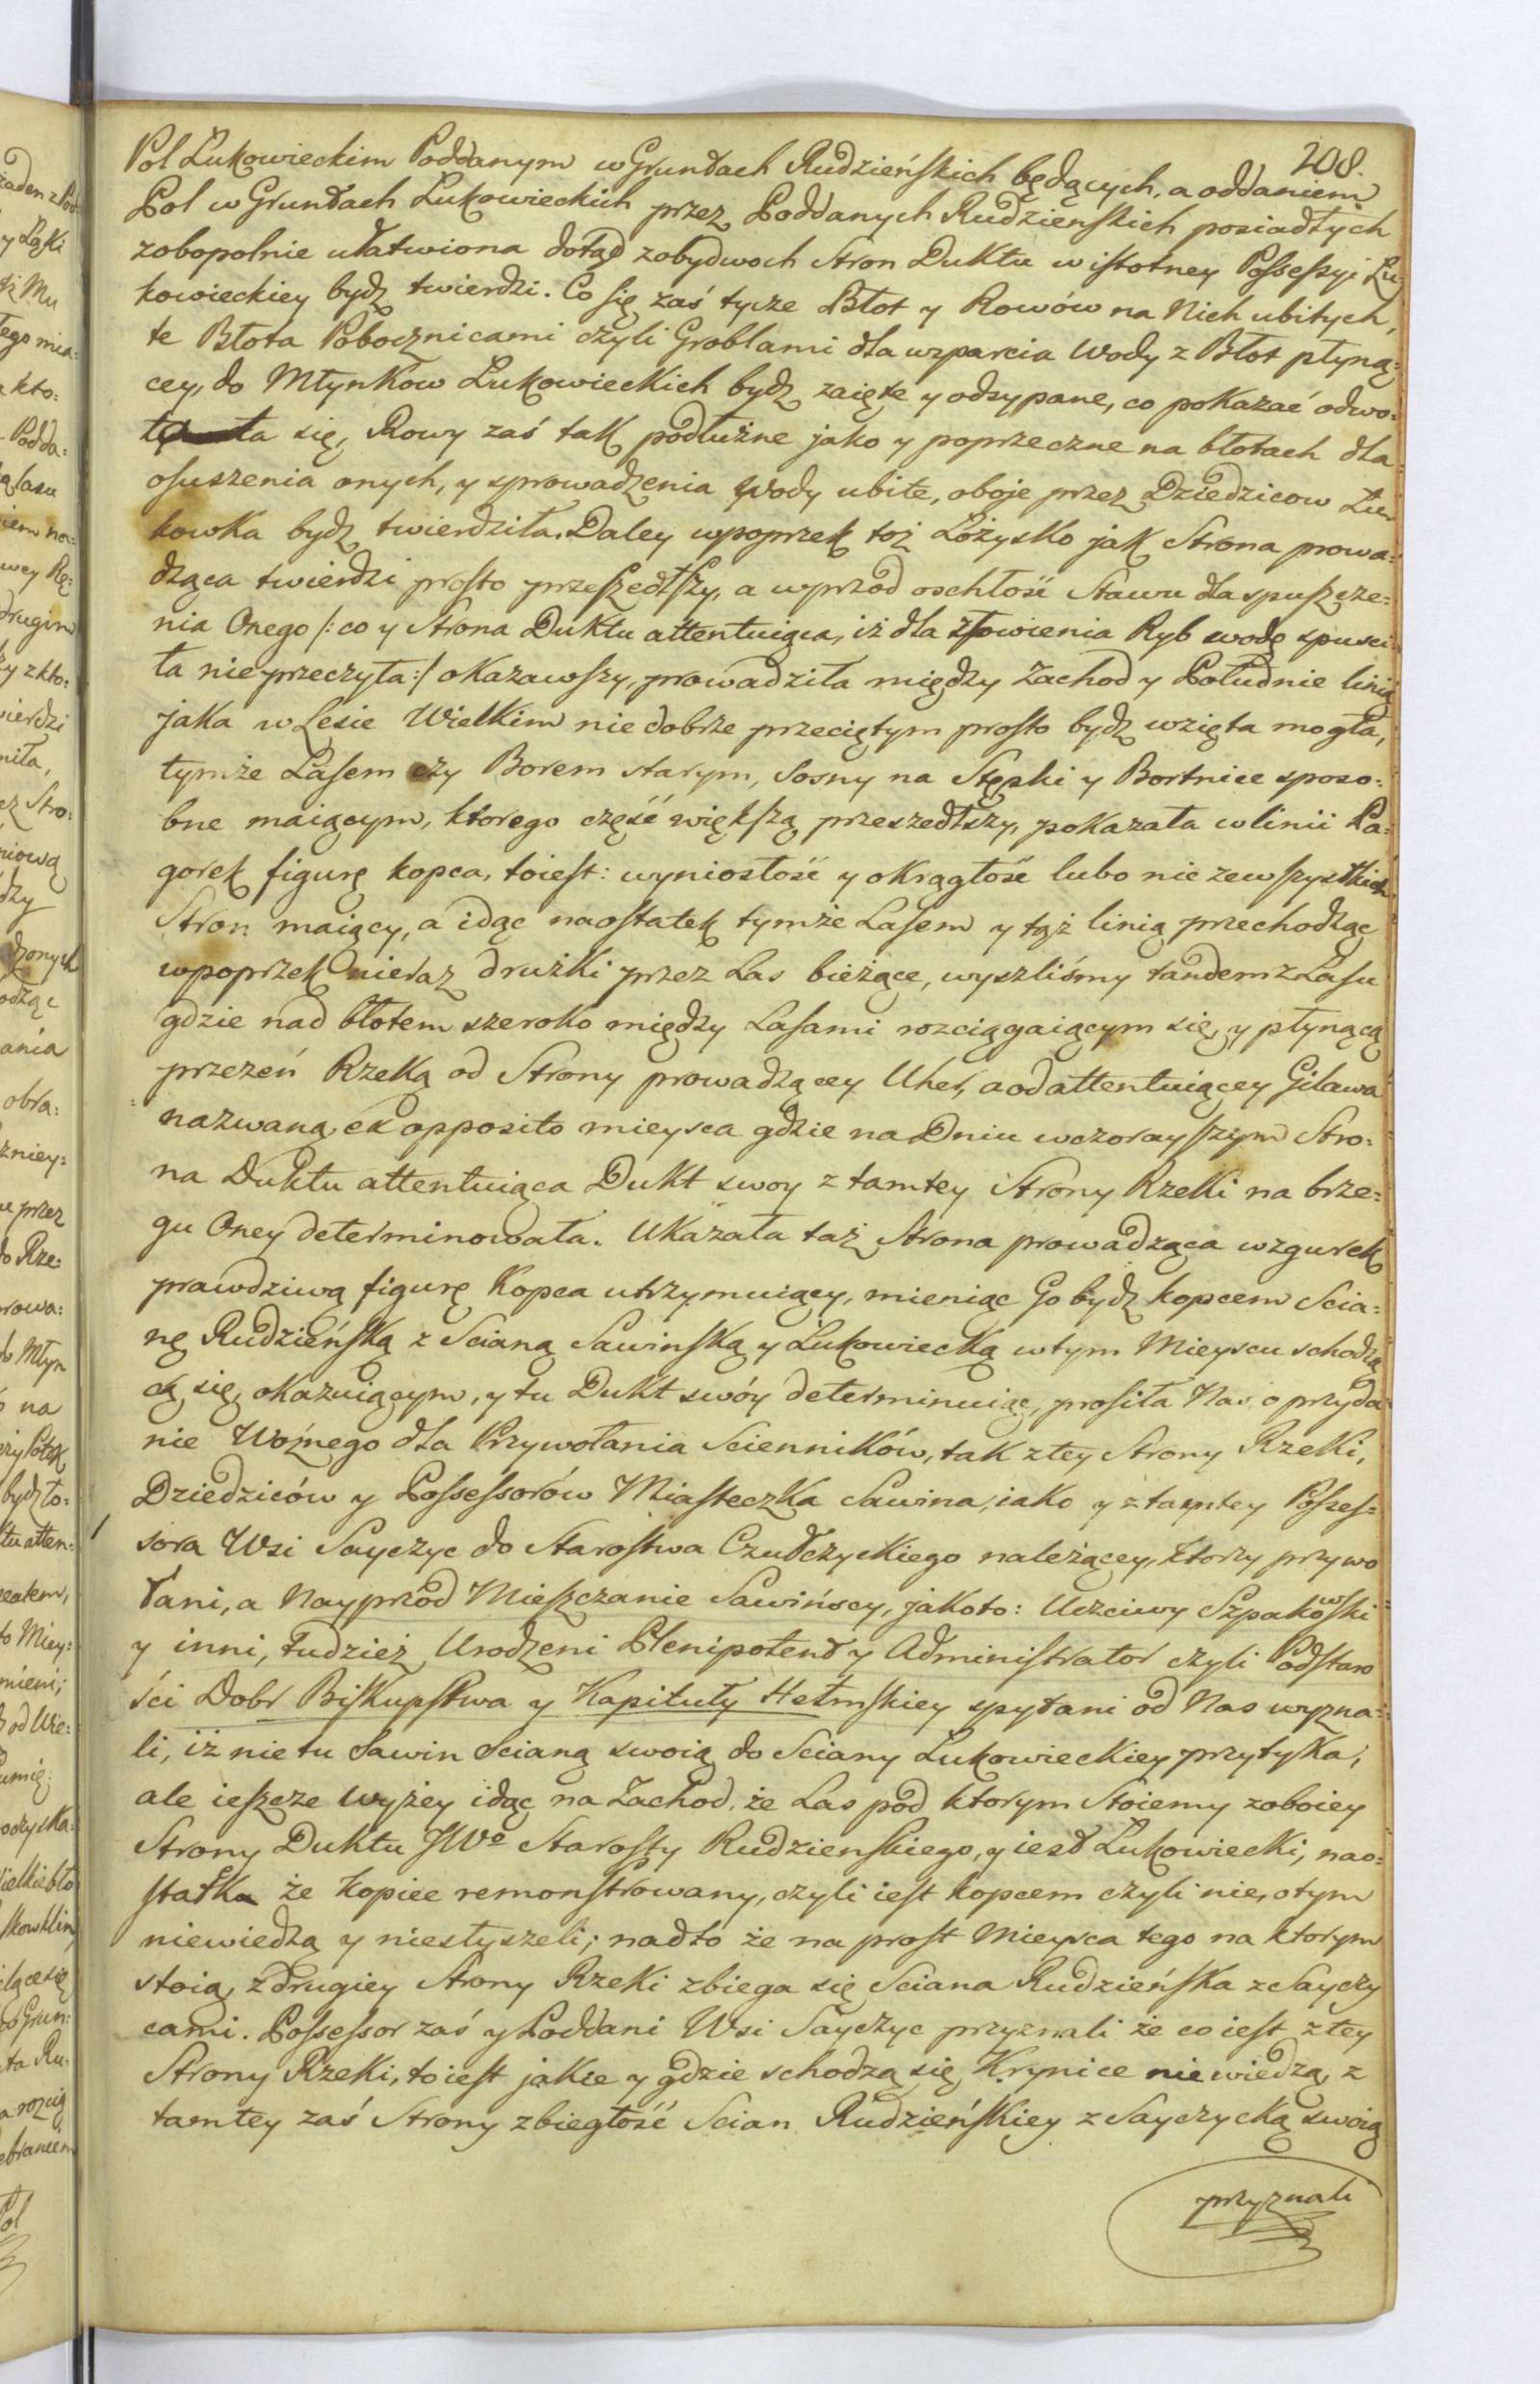 208.
Pol Łukowieckim Poddanym w Gruntach Rudzieńskich będących, a oddaniem
Pol w Gruntach Łukowieckich przez Poddanych Rudzienskich posiadłych
zobopolnie ułatwiona dotąd zobydwoch Stron Duktu w istotney Possessyi Łu
kowieckiey bydz twierdzi. Co się zaś tycze Błot y Rowów na Nich ubitych,
te Błota Pobocznicami czyli Groblami dla wzparcia Wody z Błot płyną=
cey, do Młynkow Łukowieckich bydz zaięte y odsypane, co pokazać odwo=
ła się, Rowy zaś tak podłużne jako y poprzeczne na błotach dla
osuszenia onych, y sprowadzenia Wody ubite, oboje przez Dziedzicow Łu
kowka bydz twierdziła. Daley wpoprzek toż Łożysko jak Strona prowa=
dząca twierdzi prosto przeszedłszy, a wprzod oschłość Stawu dla spuszcze=
nia Onego /: co y Strona Duktu attentuiąca, iż dla złowienia Ryb wodę spusci
ła nieprzeczyła :/ okazawszy, prowadziła między Zachod y Południe linią
jaka w Lesie Wielkim nie dobrze przeciętym prosto bydz wzięta mogła,
tymże Lasem czy Borem starym, Sosny na Stępki y Bortnice sposo=
bne maiącym, ktorego część większą przeszedłszy, pokazała w linii Pa=
gorek figurę kopca, toiest: wyniosłość y okrągłość lubo nie zewszystkich
Stron maiący, a idąc naostatek tymże Lasem y tąż linią przechodząc
wpoprzek nieraz drużki przez Las bieżące, wyszliśmy tandem z Lasu
gdzie nad błotem szeroko między Lasami rozciągaiącym się, y płynącą
przezeń Rzeką od Strony prowadzącey Uher, a od attentuiącey Gilawa
nazwaną, ex opposito mieysca gdzie na Dniu wczorayszym Stro=
na Duktu attentuiąca Dukt swoy z tamtey Strony Rzeki na brze=
gu Oney determinowała. Ukazała taż Strona prowadząca wzgurek
prawdziwą figurę Kopca utrzymuiący, mieniąc Go bydz kopcem Scia=
nę Rudzieńską z Scianą Sawinską y Łukowiecką w tym Mieyscu schodzą
cą się, okazuiącym, y tu Dukt swóy determinuiąc, prosiła Nas o przyda
nie Woźnego dla Przywołania Scienników, tak z tey Strony Rzeki,
Dziedziców y Possessorów Miasteczka Sawina, iako y z tamtey Posses=
sora Wsi Sayczyc do Starostwa Czułczyckiego należącey, ktorzy przywo
łani, a Nayprzod Mieszczanie Sawińscy, jakoto: Uczciwy Szpakowski
y inni, tudzież Urodzeni Plenipotent y Administrator czyli Podstaro
ści Dobr Biskupstwa y Kapituły Hełmskiey spytani od Nas wyzna=
li, iż nie tu Sawin Scianą swoią do Sciany Łukowieckiey przytyka,
ale ieszcze wyżey idąc na Zachod, że Las pod ktorym Stoiemy zoboiey
Strony Duktu JWo Starosty Rudzienskiego, y iest Łukowiecki, nao=
statku że kopiec remonstrowany, czyli iest kopcem czyli nie, o tym
niewiedzą y niesłyszeli; nadto że na prost Mieysca tego na ktorym
stoią, z drugiey Strony Rzeki zbiega się Sciana Rudzieńska z Sayczy
cami. Possessor zaś y Poddani Wsi Sayczyc przyznali że co iest z tey
Strony Rzeki, to iest jakie y gdzie schodzą się Krynice niewiedzą, z
tamtey zaś Strony zbiegłość Scian Rudzieńskiey z Sayczycką swoią
przyznali